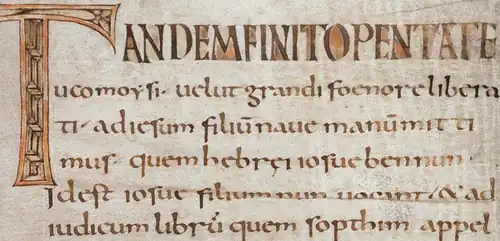 TANDEMFINITOPENTATE
uco moysi· uelut grandi foenore libera
ti· ad iesum filiū naue manū mitti
mus· quem hebręi iosue bennun·
Idest iosue filium nun uocant/ & ad
iudicum librū quem sopthim appel